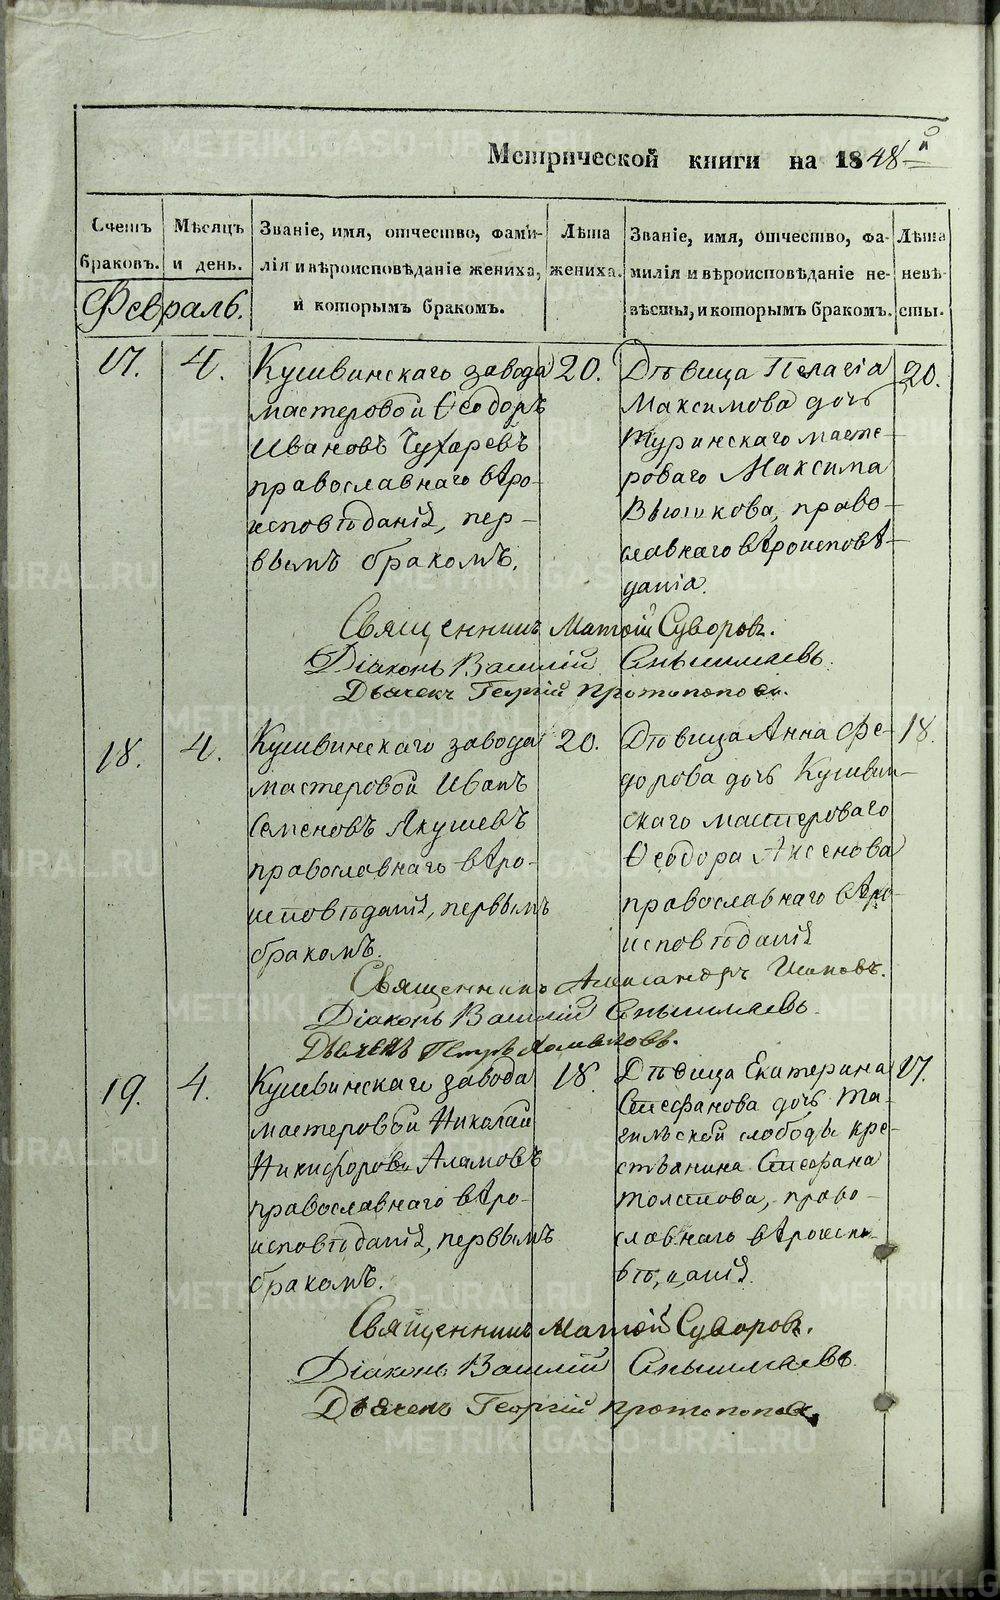 Метрической книги на 1848й
Счетъ браковъ.
Мѣсяцъ и день.
Званіе, имя, отчество, фами-
лія и вѣроисповѣданіе жениха,
и которымъ бракомъ.
Лѣта жениха.
Званіе, имя, отчество, фа-
милія и вѣроисповѣданіе не-
вѣсты, и которымъ бракомъ.
Лѣта невѣ-
сты.
Февраль.
17.
4.
Кушвинскаго завода
мастеровой Ѳеодоръ
Ивановъ Чухаревъ
православнаго вѣро-
исповѣданія, пер-
вымъ бракомъ.
20.
Дѣвица Пелагія
Максимова дочь
Туринскаго масте-
роваго Максима
православ-
наго вѣроисповѣ-
данія.
20.
Священникъ Матѳій Суворовъ.
Діаконъ Василій
Дьячекъ Георгій Протопоповъ.
18.
4.
Кушвинскаго завода
мастеровой Иванъ
Семеновъ Якушевъ
православнаго вѣро-
исповѣданія, первымъ
бракомъ.
20.
Дѣвица Анна Фе-
дорова дочь Кушвин-
скаго мастероваго
Ѳеодора Аксенова
православнаго вѣро-
исповѣданія
18.
Священникъ Александръ
Діаконъ Василій
Дьячекъ Петръ
19.
4.
Кушвинскаго завода
мастеровой Николай
Никифоровъ Аламовъ
православнаго вѣро-
исповѣданія, первымъ
бракомъ.
18.
Дѣвица Екатерина
Стефанова дочь Та-
гильской слободы кре-
стьянина Стефана
Толстова, право-
славнаго вѣроиспо-
вѣданія.
17.
Священникъ Матѳій Суворовъ.
Діаконъ Василій
Дьячекъ Георгій Протопоповъ.
METRIKI.GASO-URAL.RU